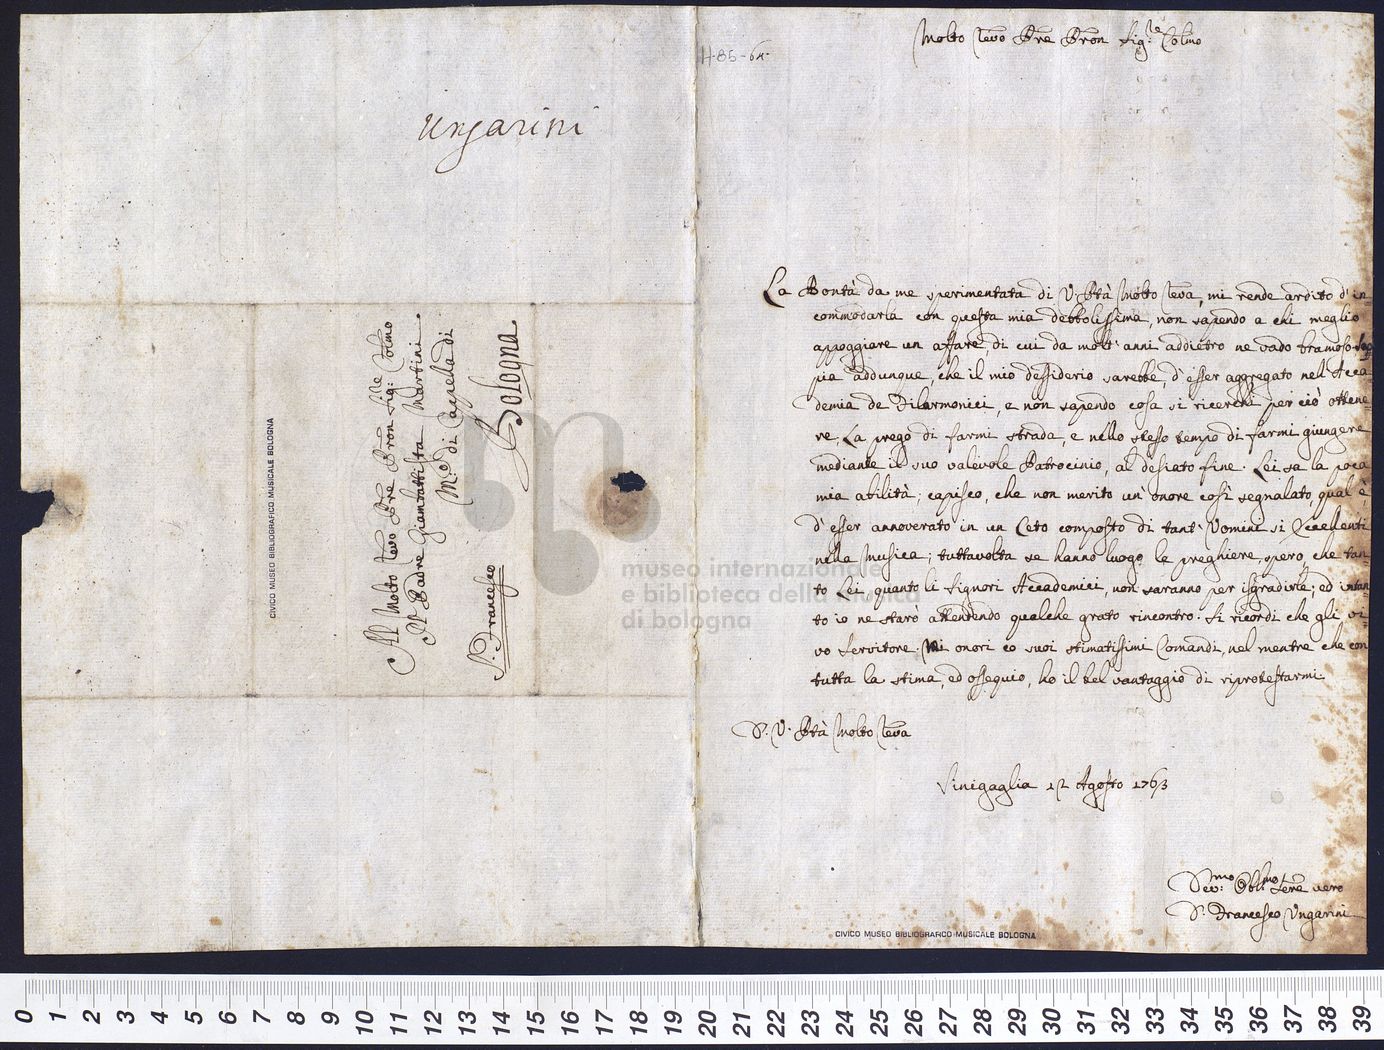 H-85-64.
Ungarini
Al Molto Revo Pre Pron Sig:re Colmo
Il Padre Giambattista Martini.
Mro di Cappella di
S. Francesco
Bologna
CIVICO MUSEO BIBLIOGRAFICO MUSICALE BOLOGNA
Molto Revo Pre Pron Sig:re Colmo
La Bontà da me sperimentata di V. Ptà Molto Reva, mi rende ardito d'in-
commodarla con questa mia debbolissima, non sapendo a chi meglio
appoggiare un affare, di cui da molt'anni addietro ne vado bramoso. Sap-
pia addunque, che il mio dessiderio sarebbe, d'esser aggregato nell'Acca-
demia de Filarmonici, e non sapendo cosa si ricerchi per ciò ottene-
re, La prego di farmi strada, e nello stesso tempo di farmi giungere
mediante il suo valevole Patrocinio, al desiato fine. Lei sa la poca
mia abilità; capisco, che non merito un'onore così segnalato qual'è
d'esser annoverato in un Ceto composto di tant'Uomini sì Eccellenti
nella Musica; tuttavolta se hanno luogo le preghiere, spero, che tan-
to Lei, quanto li Signori Accademici, non saranno per isgradirle; ed intan-
to io ne starò attendendo qualche grato rincontro. Si ricordi che gli vi-
vo Servitore. Mi onori co suoi stimatissimi Comandi, nel mentre che con
tutta la stima, ed ossequio, ho il bel vantaggio di riprotestarmi
D. V. Ptà Molto Reva
Sinigaglia 12 Agosto 1763
Dev:mo Obl:mo Serre vero
D. Francesco Ungarini
CIVICO MUSEO BIBLIOGRAFICO MUSICALE BOLOGNA
museo internazionale
e biblioteca della musica
di bologna
0 1 2 3 4 5 6 7 8 9 10 11 12 13 14 15 16 17 18 19 20 21 22 23 24 25 26 27 28 29 30 31 32 33 34 35 36 37 38 39